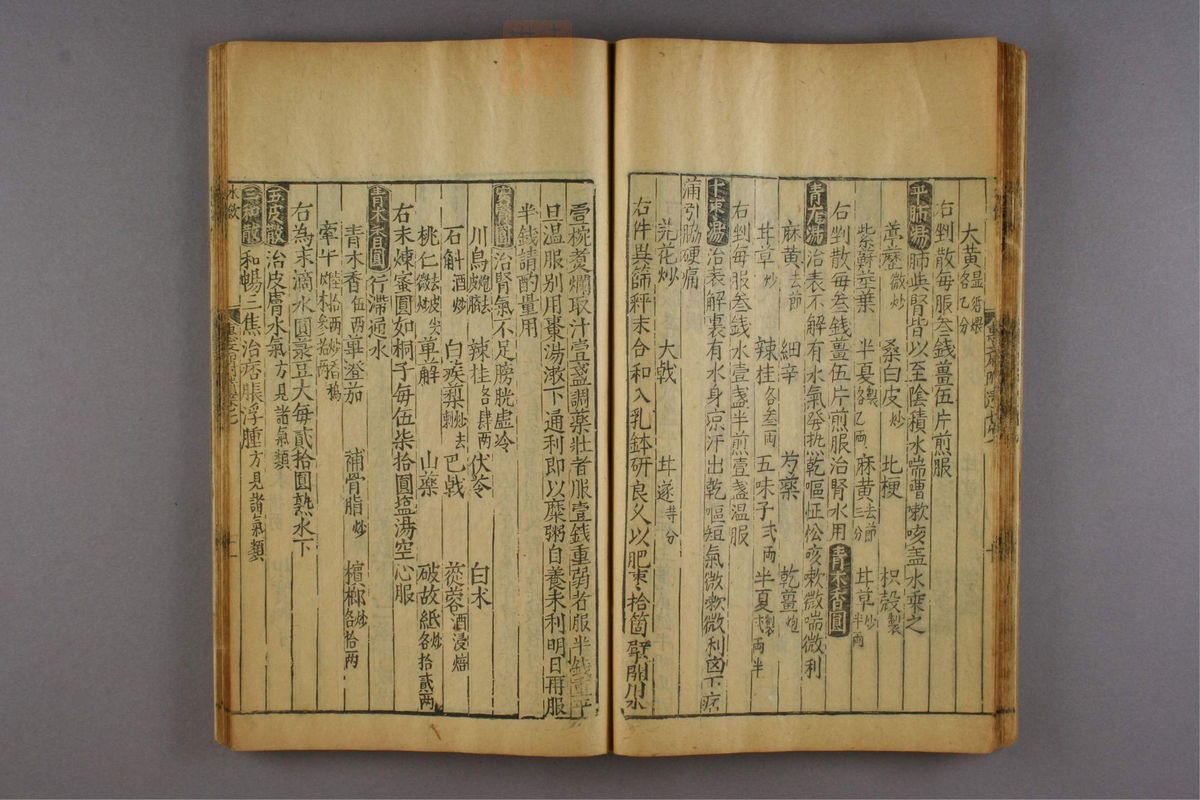 大黄
右剉散每服叁錢薑伍片煎服
平肺湯 肺與腎皆以至陰積水喘嘈嗽咳盖水乘之
葶藶微炒 桑白皮炒 北梗 枳殼製
紫蘇莖葉 半夏製 麻黄去節 甘草炒
右剉散每叁錢薑伍片煎服治腎水用青木香圓
青龍湯 治表不解有水氣發热乾嘔怔忪咳嗽微喘微利
麻黄去節 細辛 芍藥 乾薑炮
甘草炒 辣桂各叁兩 五味子弍兩 半夏製弍兩半
右剉每服叁錢水壹盞半煎壹盞温服
十棗湯 治表解裏有水身凉汗出乾嘔短氣微嗽微利
滿引脇硬痛
芫花炒 大戟 甘遂等分
右件異篩秤末合和入乳鉢研良久以肥棗拾箇擘開用水
壹椀煑爛取汁壹盞調藥壯者服壹錢重弱者服半錢重平
旦温服别用棗湯漱下通利即以糜粥自養未利明日再服
半錢請酌量用
治腎氣不足膀胱虚冷
川烏 辣桂各肆兩 伏苓 白术
石斛酒炒 白蒺䔧炒去刺 巴戟 蓯蓉酒浸焙
桃仁 萆解 山藥 破故紙炒各拾貳兩
右末煉蜜圓如桐子每伍柒拾圓塩湯空心服
青木香圓 行滯通水
青木香伍兩 蓽澄茄 補骨脂炒 檳榔各拾兩
牽牛
右為末滴水圓菉豆大每貳拾圓熟水下
五皮散 治皮膚水氣方見諸氣類
三和散 和暢三焦治痞脹浮腫方見諸氣類